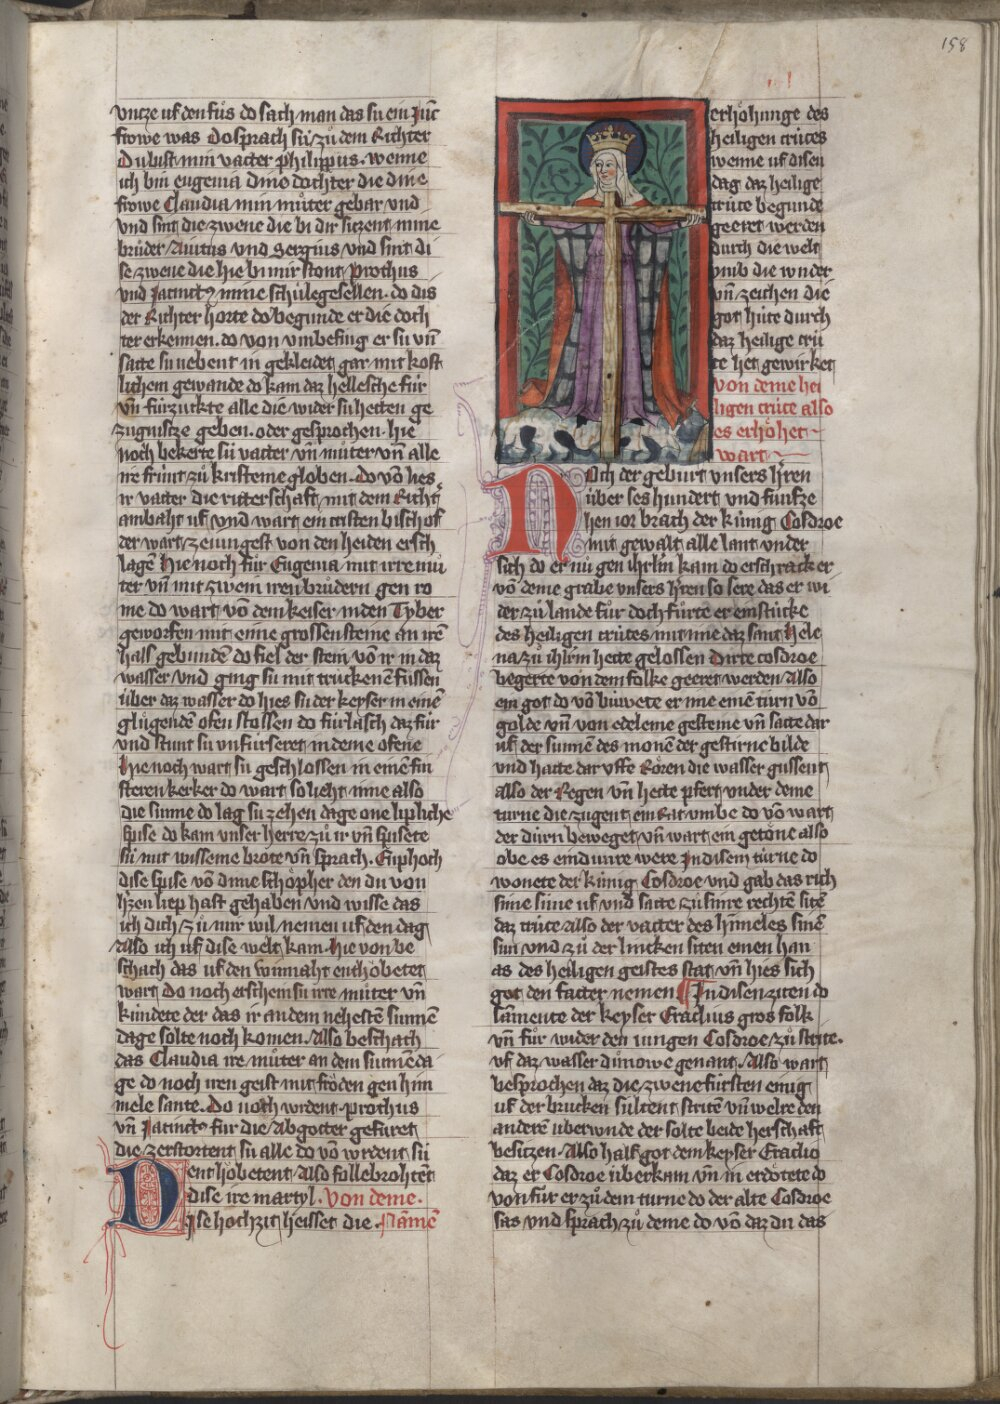 158
vntze uf den fůs do sach man das sú ein Junc
frowe was Do sprach sú zů dem Richter
Du bist min vatter philippus. wenne
ich bin eugenia dino dochter die dine
frowe Claudia min můter gebar vnd
vnd sint die zwene die bi dir sitzent mine
brůder Auitus vnd Sergius vnd sint di
se zwene die hie bi mir stont prothus
vnd Jacinctꝰ mine schůlegesellen. do dis
der Richter horte do begunde er die doch
ter erkennen. do von vmbefing er sú vn̄
satte sú nebent in gekleidet gar mit kost
lichem gewande do kam daz hellesche fúr
vn̄ fúrzuckte alle die wider sú hetten ge
zúgnisze geben. oder gesprochen. hie
noch bekerte sú vatter vn̄ můter vn̄ alle
ire frúnt zů kristeme globen. do vō lies
ir vatter die ritterschaft mit dem Richt
ambaht uf vnd wart ein cristen bischof
der wart zeiungest von den heiden ersch
lagē hie noch fůr Eugenia mit irre mů
ter vn̄ mit zwein iren brůdern gen ro
me do wart vō dem keiser in den Tyber
geworfen mit eime grossen steine an irē
hals gebundē do fiel der stein vō ir in daz
wasser vnd ging sú mit truckenē fússen
über daz wasser do hies sú der keyser in einē
glůgendē ofen stossen do fúrlasch daz fúr
vnd stunt sú vnfúrseret in deme ofene
hie noch wart sú geschlossen in einē fin
steren kerker do wart so lieht inne also
die sunne do lag sú zehen dage one lipliche
spise do kam vnser herre zů ir vn̄ spisete
sú mit wisseme brote vn̄ sprach. Enphoch
dise spise vō dime schôpher den du von
hīzen liep hast gehaben vnd wisse das
ich dich zů mir wil nemen uf den dag
Also ich uf dise welt kam. hie von be
schach das uf den winnaht enthôbetet
wart Do noch erschein sú irre můter vn̄
kúndete der das ir an dem nehestē sunnē
dage solte noch komen. Also beschach
das Claudia ire můter an dem sunnēda
ge do noch iren geist mit frôden gen him
mele sante. Do noch wrdent prothus
vn̄ Jacinctꝰ fúr die Abgotter gefúret
die zerstortent sú alle do vō wrdent sú
enthôbetent Also follebrohtēt
dise ire martyl. Von deme.
Dise hochzit heisset die. Nāmē
erhôhunge des
heiligen crúces
wenne uf disen
dag daz heilige
crúte begunde
geeret werden
durch die welt
vmb die wnder
vn̄ zeichen die
got húte durch
daz heilige crú
te het gewirket
von deme hei
ligen crúce also
es erhôhet
wart
Noch der geburt vnsers hēren
über ses hundert vnd fúnfze
hen ior brach der kúnig Cosdroe
mit gewalt alle lant vnder
sich do er nů gen ihrlm kam do erschrack er
vō deme grabe vnsers hēren so sere das er wi
der zů lande fůr doch fůrte er ein stúcke
des heiligen crútes mit ime daz sant hele
na zů ihlrm hette gelossen Dirte cosdroe
begerte von dem folke geeret werden Also
ein got do vō buwete er ime einē turn vō
golde vn̄ von edeleme gesteine vn̄ satte dar
uf der sunnē des monē der gestirne bilde
vnd hatte dar uffe Rôren die wasser gussent
also der Regen vn̄ hette pfert vnder deme
turne die zugent ein Rat vmbe do vō wart
der durn beweget vn̄ wart ein getône also
obe es ein dunre were In disem túrne do
wonete der kúnig Cosdroe vnd gab das rich
sime sune uf vnd satte zů sinre rechtē sitē
daz crúce Also der vatter des himeles sinē
sun vnd zů der lincken siten einen han
as des heiligen geistes stat vn̄ hies sich
got den fatter nemen In disen ziten do
samente der keyser Eraclius gros folk
vn̄ fůr wider den iungen Cosdroe zů strite.
uf daz wasser důnowe genant. Also wart
besprochen daz die zwene fúrsten einig
uf der brucken súltent stritē vn̄ welre den
anderē úberwnde der solte beide herschaft
besitzen. Also half got dem keyser Eraclio
daz er Cosdroe überkam vn̄ in erdôtete do
von fůr er zů dem turne do der alte Cosdroe
sas vnd sprach zů deme do vō daz du das